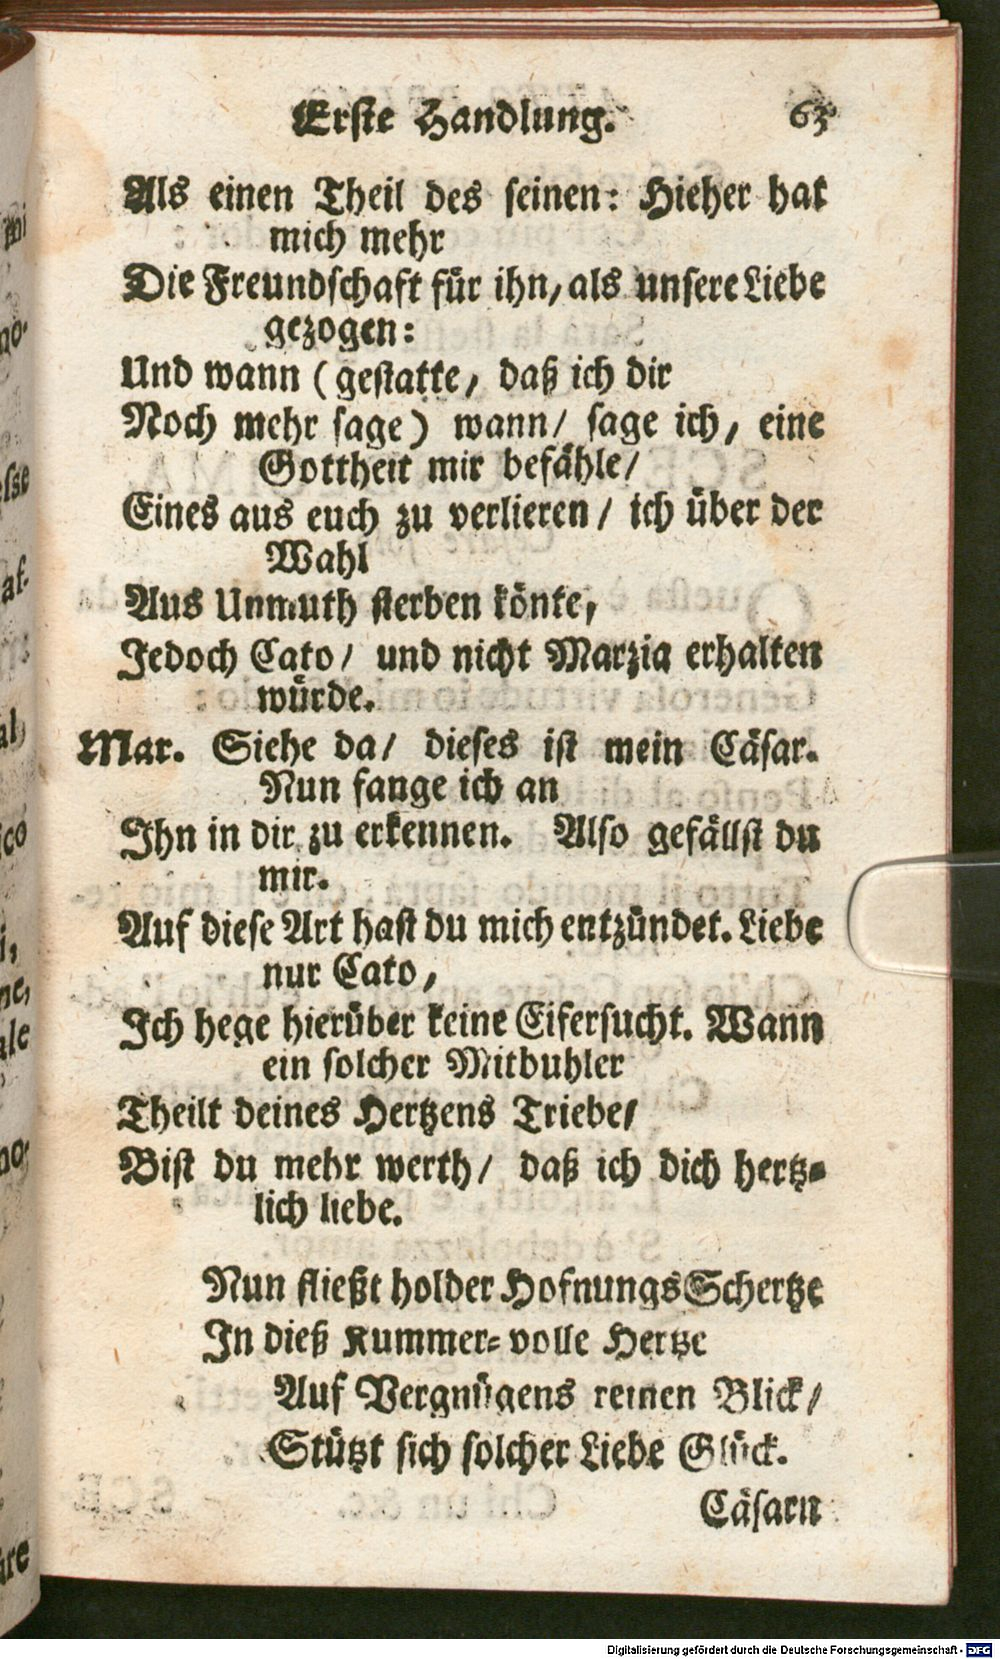 Erste Handlung. 63
Als einen Theil des seinen: Hieher hat
mich mehr
Die Freundschaft für ihn, als unsere Liebe
gezogen:
Und wann (gestatte, daß ich dir
Noch mehr sage) wann/ sage ich, eine
Gottheit mir befähle/
Eines aus euch zu verlieren/ ich über der
Wahl
Aus Unmuth sterben könte,
Jedoch Cato/ und nicht Marzia erhalten
würde.
Mar. Siehe da/ dieses ist mein Cäsar.
Nun fange ich an
Ihn in dir zu erkennen. Also gefällst du
mir.
Auf diese Art hast du mich entzündet. Liebe
nur Cato,
Ich hege hierüber keine Eifersucht. Wann
ein solcher Mitbuhler
Theilt deines Hertzens Triebe/
Bist du mehr werth/ daß ich dich hertz-
lich liebe.
Nun fließt holder Hofnungs Schertze
In dieß Kummer-volle Hertze
Auf Vergnügens reinen Blick/
Stützt sich solcher Liebe Glück.
Cäsarn
Digitalisierung gefördert durch die Deutsche Forschungsgemeinschaft - DFG